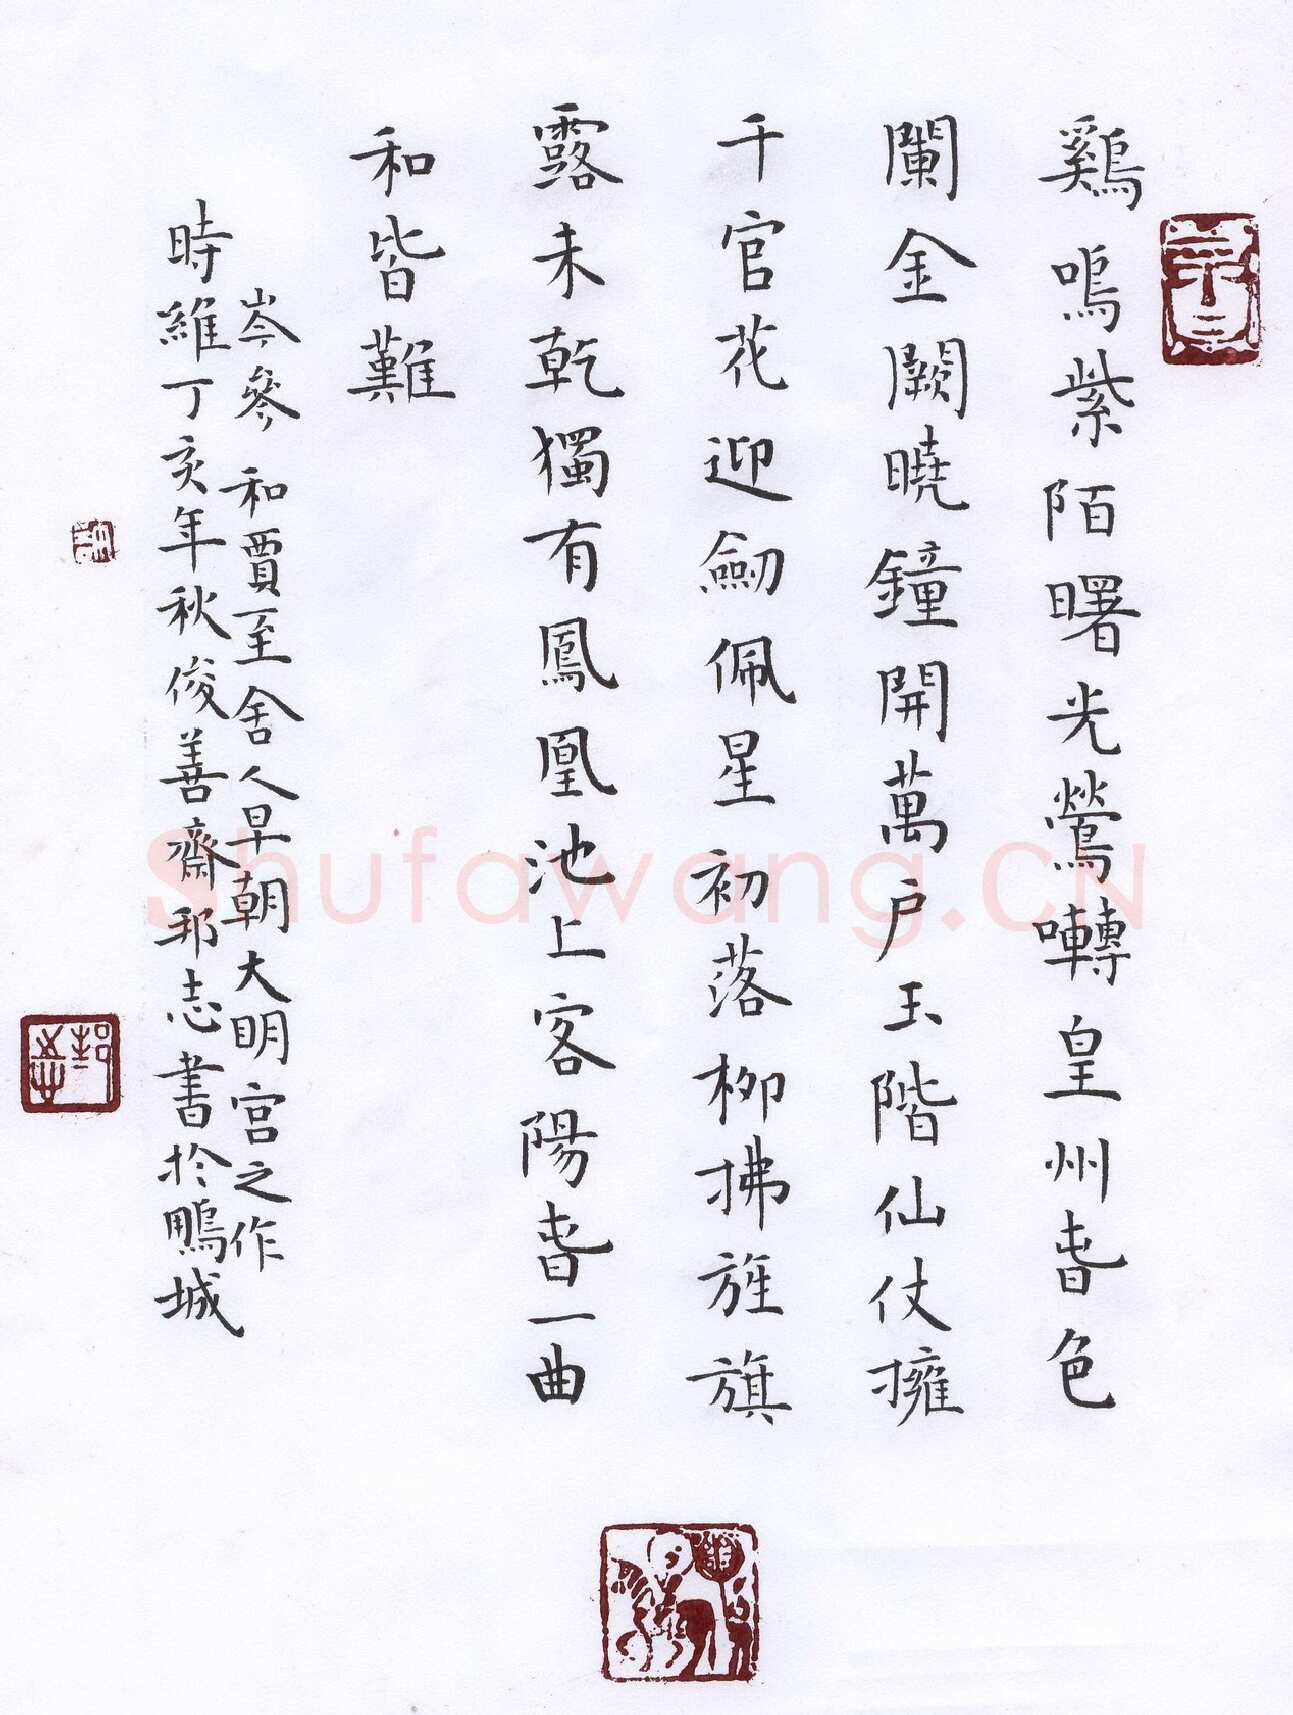 鷄鳴紫陌曙光鶯囀皇州旾色
闌金闕曉鐘開萬户玉階仙仗擁
千官花迎劒佩星初落柳拂旌旗
露未乾獨有鳳凰池上客陽旾一曲
和皆難
岑參 和賈至舍人早朝大明宮之作
時維丁亥年秋俊善齋邦志書於鵬城
Shufawang.CN